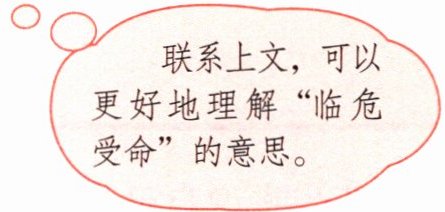 联系上文，可以
更好地理解“临危
受命”的意思。